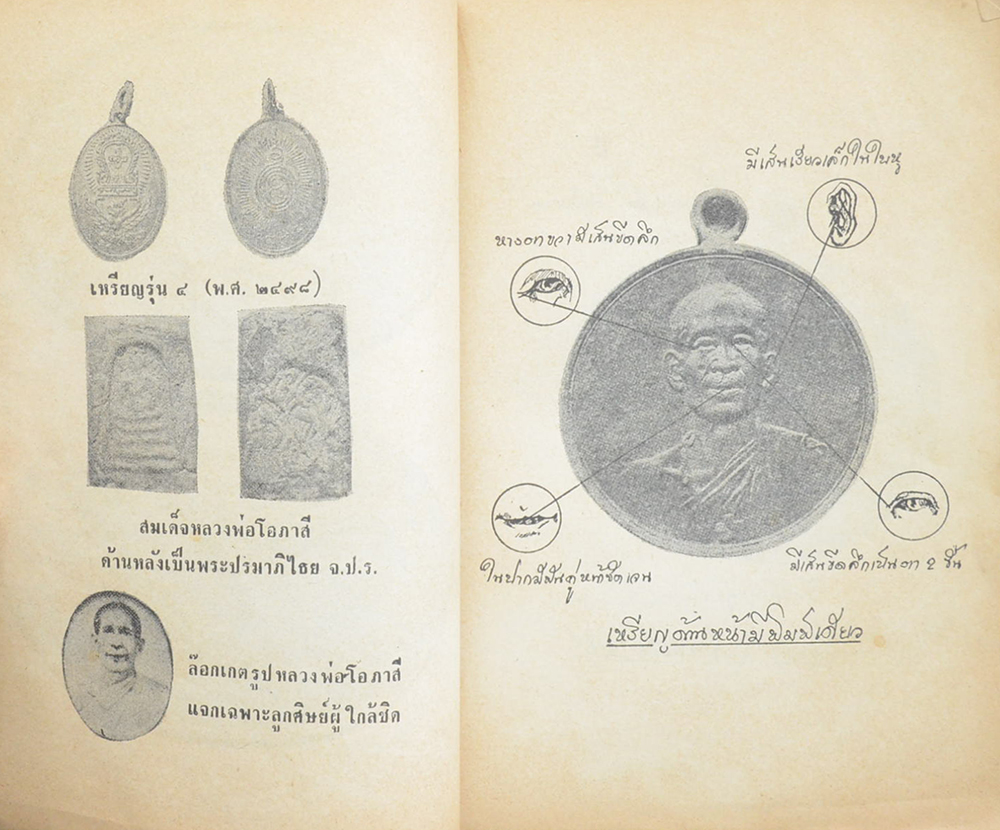 เหรียญรุ่น ๔ (พ.ศ. ๒๔๙๘)
สมเด็จหลวงพ่อโอภาสี
ด้านหลังเป็นพระปรมาภิไธย จ.ป.ร.
ล๊อกเกตรูปหลวงพ่อโอภาสี
แจกเฉพาะลูกศิษย์ผู้ใกล้ชิด
มีเส้นเรียวเล็กในใบหู
หางตาขวามีเส้นขีดลึก
ในปากมีฟันคู่หน้าชัดเจน
มีเส้นขีดลึกเป็นตา 2 ชั้น
เหรียญด้านหน้ามีพิมพ์เดียว